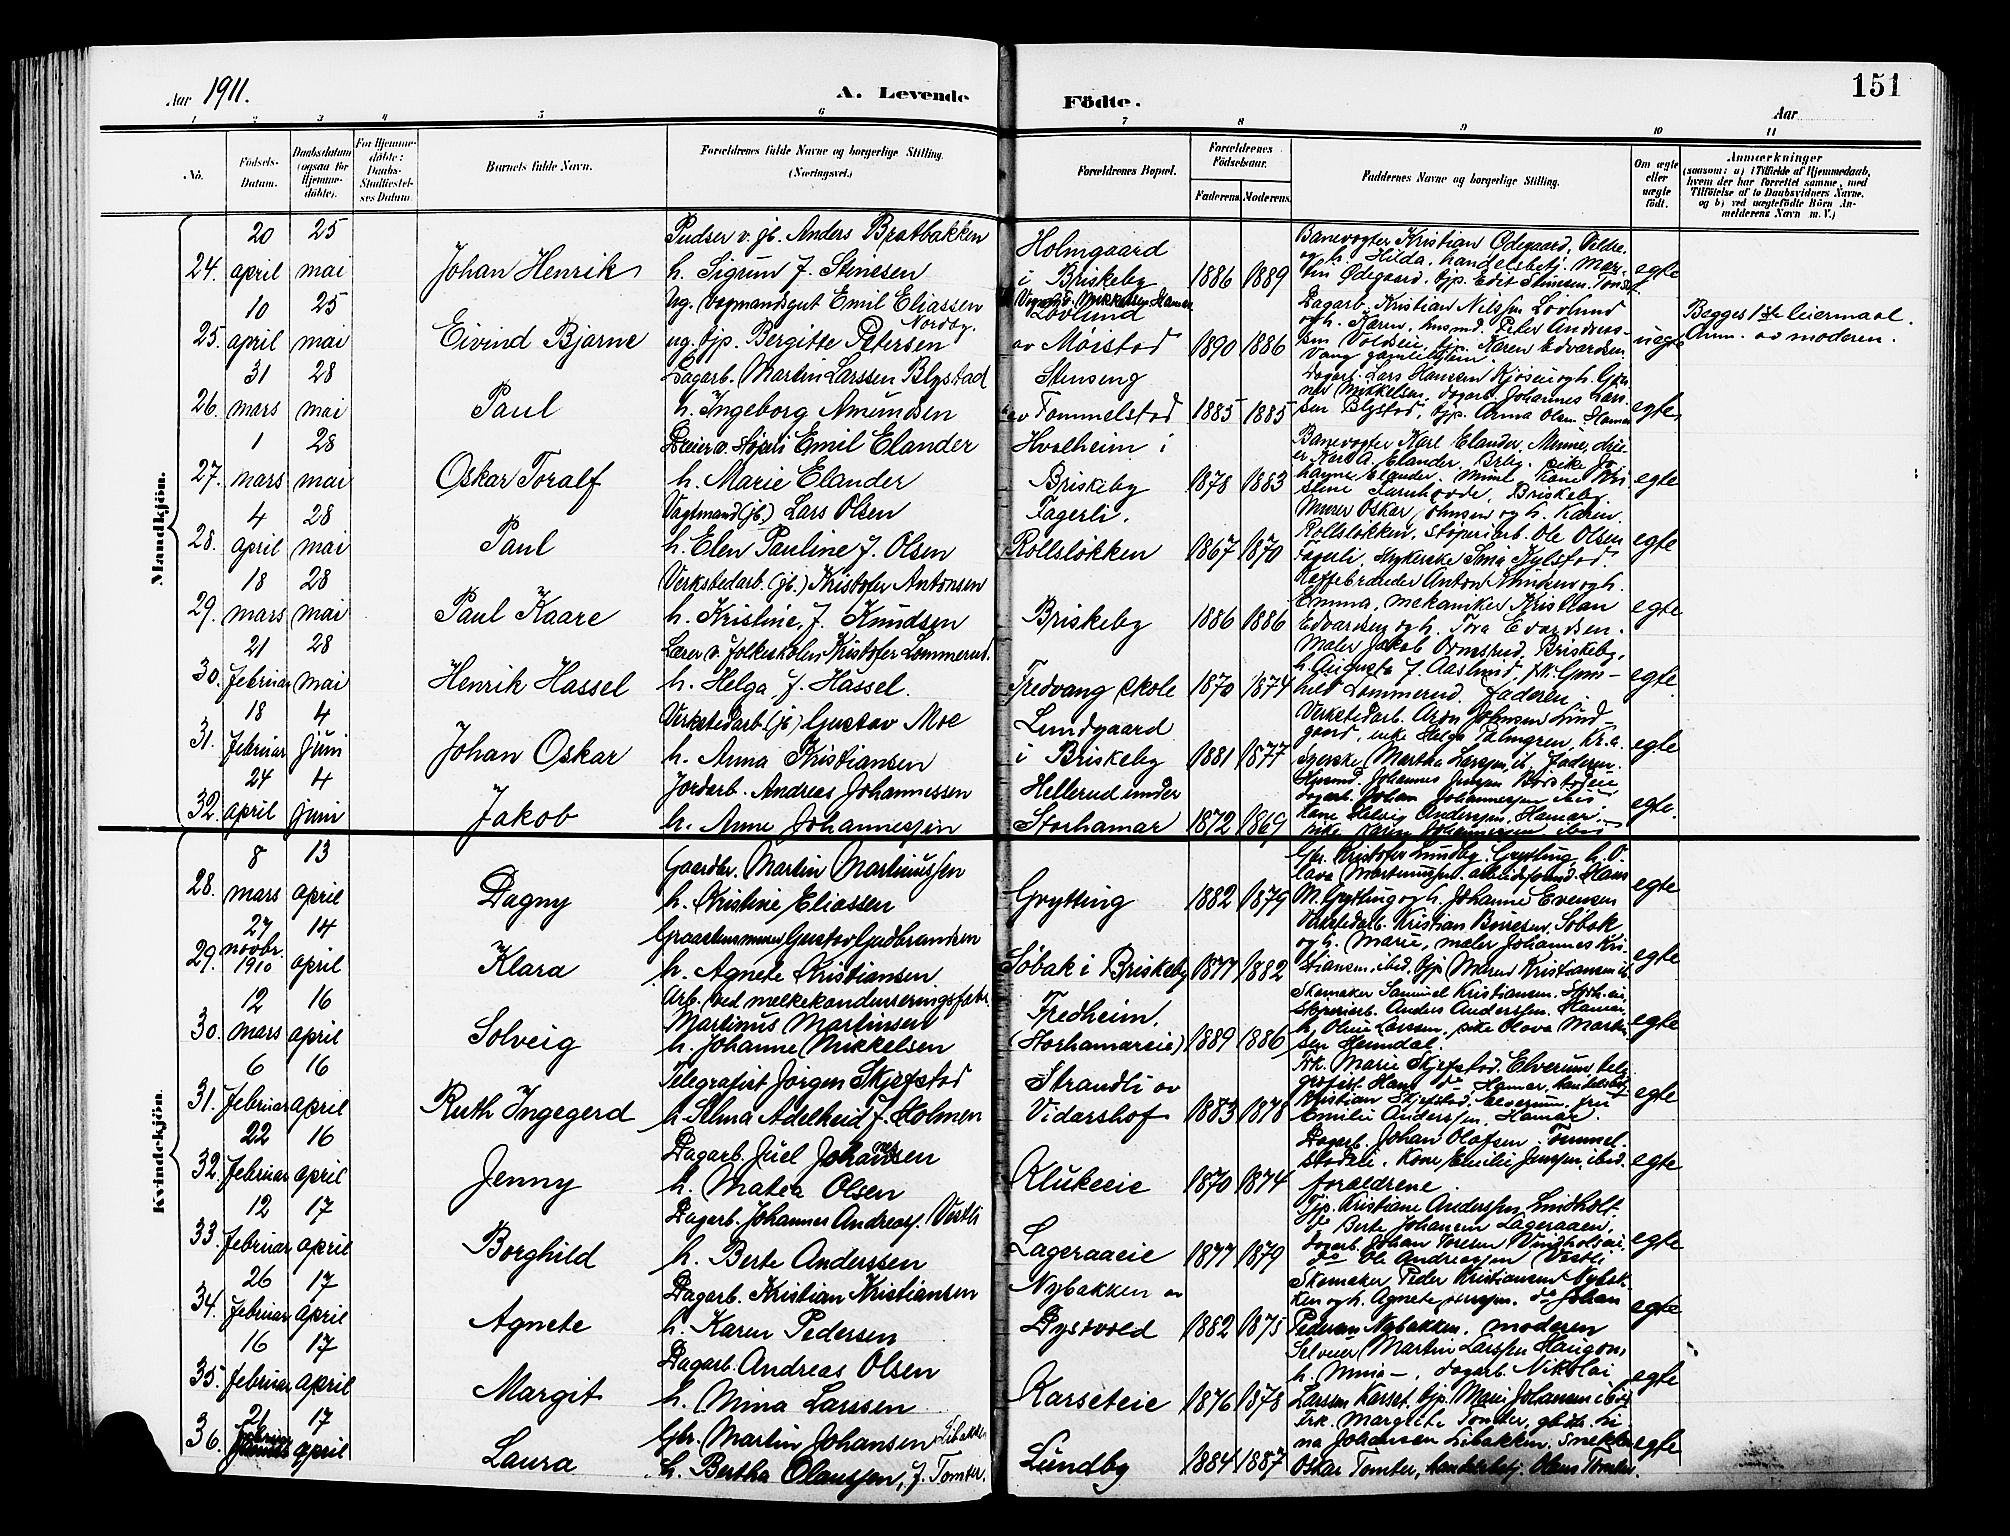 151
Aar 1911.
A. Levende Födte.
Aar
1 2 3 4 5 6 7 8 9 10 11
No.
Födsels-Datum.
Daabsdatum (ogsaa for Hjemmedöbte).
For Hjemmedöbte: Daabs-Stadfæstelses Datum
Barnets fulde Navn.
Forældrenes fulde Navne og borgerlige Stilling. (Næringsvei.)
Forældrenes Bopæl.
Forældrenes Födselsaar.
Faderens. Moderens.
Faddernes Navne og borgerlige Stilling.
Om ægte eller uægte födt.
Anmærkninger
(saasom: a) i Tilfælde af Hjemmedaab, hvem der har forrettet samme, med Tilföielse af to Daabsvidners Navne, og b) ved uægtefödte Börn Anmelderens Navn m. V.)
Mandkjön.
24. 20 april 25 mai Johan Henrik
Pudser v. jb. Anders Bratbakken
h. Sigrun f. Stinesen
Holmgaard i Briskeby 1886 1889
Banevogter Kristian Ødegaard, Vildre og h. Hilda, handelsbetj. Martin Ødegaard, tjp. Edit Stinesen egte
25. 10 april 25 mai Eivind Bjarne
Ug. vognmandsgut Emil Eliassen Nordby.
ug. tjp. Bergitte Petersen
Vognm. Mikkelsen Hamar
Lövlund av Møistad 1890 1886
Dagarb. Kristian Nilssen Lövlund og h. Karen, husmd. Peter Andreassen Voldseie, tjp. Karen Edvardsen Vang uegte
Begges 1ste leiermaal. Anm. av moderen.
26. 31 mars 28 mai Paul
Dagarb. Martin Larssen Blystad
h. Ingeborg Amundsen
Stenseng av Tommelstad 1885 1885
Dagarb. Lars Hansen Kjøseie og h. Gunner Mikkelsen, dagarb. Johannes Larssen Blystad, tjp. Anna Olsen Hamar egte
27. 1 mars 28 mai Oskar Toralf
Dreier v. støperi Emil Elander
h. Marie Elander
Hvalheim i Briskeby 1878 1883
Banevogter Karl Elander, Menne, dreier Karl A. Elander. Brby. pike Johanne Elander. kone Kristine Briskeby egte
28. 4 april 28 mai Paul
Vagtmand (jb.) Lars Olsen
h. Elen Pauline f. Olsen
Fagerli. Rollsløkken 1867 1870
Murer Oskar Johnsen og h. Karen. Rollsløkken, støperiarb. Ole Olsen Fagerli, strykerske egte
29. 18 mars 28 mai Paul Kaare
Verkstedarb. (jb.) Kristofer Antonsen
h. Kristine, f. Knudsen
Briskeby 1886 1886
Kaffebrænder Anton Knudsen og h. Emma, mekaniker Kristian Edvardsen og h. Tora Evardsen. egte
30. 21 februar 28 mai Henrik Hassel
Lærer v. folkeskolen Kristofer Lommerud.
h. Helga, f. Hassel.
Fredvang skole 1870 1874
Maler Jakob Ormsrud, Briskeby, h. Augusta f. Aaslund, frk. Gunhild Lommerud. faderen. egte
31. 18 februar 4 juni Johan Oskar
Verkstedarb. (jb) Gustav Moe
h. Anna Kristiansen
Lundgaard i Briskeby 1881 1877
Verkstedarb. Aron Johnsen Lundgaard, enke Helga Palmgren, Kr.a. syerske Martha Larssen, ib. faderen. egte
32. 24 april 4 juni Jakob
Jordarb. Andreas Johannessen
h. Anne Johannessen
Hellerud under Storhamar 1872 1869
Husmd. Johannes Jenssen dagarb. Johan Johannessen ibid. kone Helvig Anderssen, Hamar, pike Karen Johannessen ibid egte.
Kvindekjön.
28. 8 mars 13 april Dagny
Gaardbr. Martin Martinussen
h. Kristine Eliassen
Grytting 1882 1879
Gbr. Kristofer Lundby. Grytting, h. Olava Martinussen, arbeidsformd. Hans M. Grytting og h. Johanne Evensen egte
29. 27 novbr. 1910 14 april Klara
Graastensminer Gustav Gudbrandsen
h. Agnete Kristiansen.
Søbak i Briskeby 1877 1882
Verkstedarb. Kristian Søbak og h. Marie, maler Johannes Kristiansen, ibid. tjp. Maren Kristiansen ib. egte
30. 12 mars 16 april Solveig
Arb. ved melkekondenseringsfabr. Martinus Martinsen
h. Johanne Mikkelsen
Fredheim. (Storhamareie) 1889 1886
Skomaker Samuel Kristiansen. Storh.eie, støperiarb. Anders Anderssen, Hamar, h. Oline Larssen, pike Olava Martinsen Heimdal. egte
31. 6 februar 16 april Ruth Ingegerd
Telegrafist Jørgen Skjefstad
h. Alma Adelheid f. Holmen
Strandli av Vidarshof 1883 1878
Frk. Marie Skjefstad. Elverum, telegrafist Hans do Hamar, handelsbetj. Kristian Skjefstad, Elverum, fru Emilie Anderssen, Hamar. egte
32. 22 februar 16 april Jenny
Dagarb. Juel Johannessen
h. Matea Olsen
Klukeeie 1870 1874
Dagarb. Johan Olafsen Tommelstadeie. Kone Emilie Jenssen, ibid. forældrene egte
33. 12 februar 17 april Borghild
Dagarb. Johannes Andreass. Vestli
h. Berte Anderssen
Lageraaeie 1877 1879
Tjp. Kristiane Anderssen, Lindholt. do Berte Johansen Lageraaen, dagarb. Johan Toresen Vindholseie. do Ole Andreassen Vestli egte
34. 26 februar 17 april Agnete
Dagarb. Kristian Kristiansen
h. Karen Pedersen
Nybakken av Dystvold 1882 1875
Skomaker Peder Kristiansen Nybakken og h. Agnete do Johan Pedersen Nybakken. moderen egte
35. 16 februar 17 april Margit
Dagarb. Andreas Olsen
h. Mina Larssen
Karseteie 1876 1878
Selveier Martin Larssen Haugom h. Mina –, dagarb. Nikolai Larssen Karset, tjp. Marie Johansen ibid egte
36. 21 februar 17 april Laura
Gbr. Martin Johansen Libakken
h. Bertha Olaussen, f. Tomter.
Lundby 1884 1887
Frk. Margrete Tomter, gbdtr. Lina Johansen Libakken. Snekker Oskar Tomter, handelsbetj. Olaus Tomter. egte